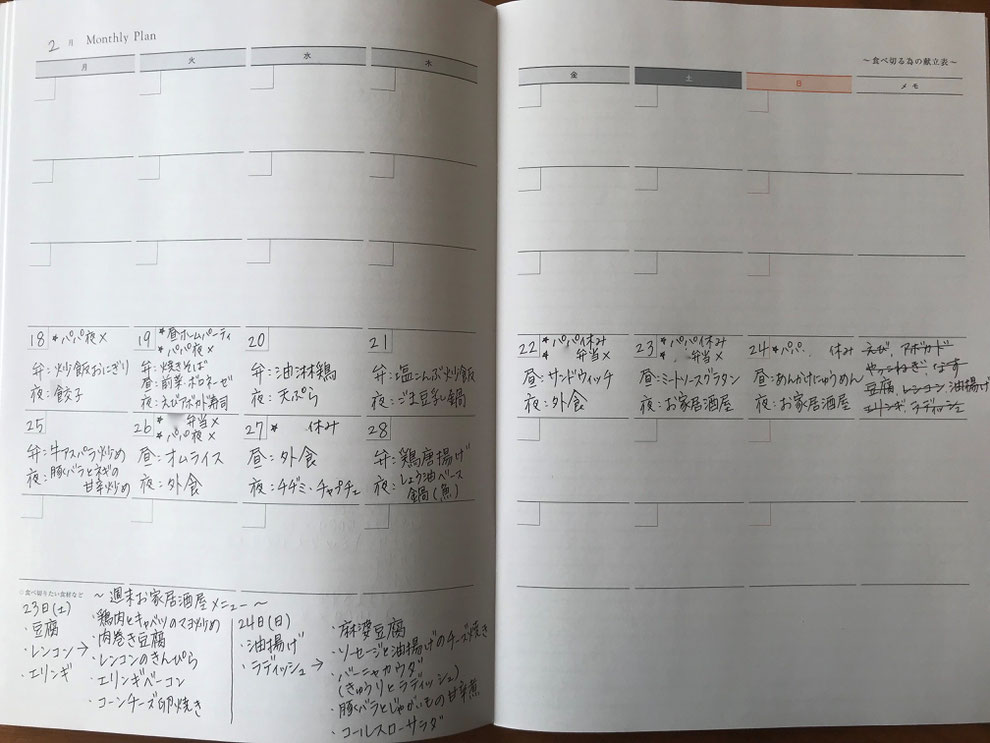 2月 Monthly Plan
月 火 水 木
～食べ切る為の献立表～
金 土 日 メモ
18 *パパ夜×
弁:炒飯おにぎり
夜:餃子
19 *昼ホームパーティ
*パパ夜×
弁:焼きそば
昼:前菜・ボロネーゼ
夜:えびアボカド寿司
20
弁:油淋鶏
夜:天ぷら
21
弁:塩こんぶ炒飯
夜:ごま豆乳鍋
22 *パパ休み
* 弁当×
昼:サンドウィッチ
夜:外食
23 *パパ休み
* 弁当×
昼:ミートソースグラタン
夜:お家居酒屋
24 *パパ、 休み
昼:あんかけにゅうめん
夜:お家居酒屋
えび、アボカド
やっこねぎ なす
豆腐、レンコン 油揚げ
エリンギ、ラディッシュ
25
弁:牛アスパラ炒め
夜:豚バラとネギの
甘辛炒め
26 * 弁当×
*パパ夜×
昼:オムライス
夜:外食
27 * 休み
昼:外食
夜:チヂミ・チャプチェ
28
弁:鶏唐揚げ
夜:しょう油ベース
鍋(魚)
○食べ切りたい食材など
～週末お家居酒屋メニュー～
23日(土)
・豆腐
・レンコン→
・エリンギ
・鶏肉とキャベツのマヨ炒め
・肉巻き豆腐
・レンコンのきんぴら
・エリンギベーコン
・コーンチーズ卵焼き
24日(日)
・油揚げ
・ラディッシュ→
・麻婆豆腐
・ソーセージと油揚げのチーズ焼き
・バーニャカウダ
(きゅうりとラディッシュ)
・豚バラとじゃがいもの甘辛煮
・コールスローサラダ